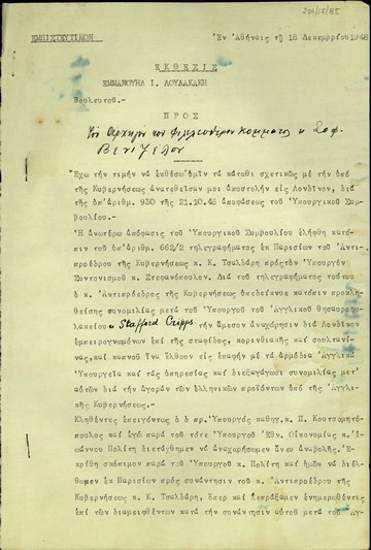 ΕΜΠΙΣΤΕΥΤΙΚΟΝ
Ἐν Ἀθήναις τῇ 18 Δεκεμβρίου 1948
ΕΚΘΕΣΙΣ
ΕΜΜΑΝΟΥΗΛ Ι. ΛΟΥΛΑΚΑΚΗ
Βουλευτοῦ.-
ΠΡΟΣ
Τὸν Ἀρχηγὸν τοῦ Φιλελευθέρου κόμματος κ. Σοφ.
Βενιζέλον
Ἔχω τὴν τιμὴν νὰ ἐκθέσω ὑμῖν τὰ κάτωθι σχετικῶς μὲ τὴν ὑπὸ
τῆς Κυβερνήσεως ἀνατεθεῖσαν μοι ἀποστολὴν εἰς Λονδῖνον, διὰ
τῆς ὑπ'ἀριθμ. 930 τῆς 21.10.48 ἀποφάσεως τοῦ Ὑπουργικοῦ Συμ-
βουλίου.-
Ἡ ἀνωτέρω ἀπόφασις τοῦ Ὑπουργικοῦ Συμβουλίου ἐλήφθη κατόπιν
τοῦ ὑπ'ἀριθμ. 662/2 τηλεγραφήματος ἐκ Παρισίων τοῦ Ἀντι-
προέδρου τῆς Κυβερνήσεως κ. Κ. Τσαλδάρη πρὸς τὸν Ὑπουργὸν
Συντονισμοῦ κ. Στεφανόπουλον. Διὰ τοῦ τηλεγραφήματος τούτου
ὁ κ. Ἀντιπρόεδρος τῆς Κυβερνήσεως ὑπεδείκνυε κατόπιν προκλη-
θείσης συνομιλίας μετὰ τοῦ Ὑπουργοῦ τοῦ Ἀγγλικοῦ θησαυροφυ-
λακείου κ. Stafford Cripps. τὴν ἄμεσον ἀναχώρησιν διὰ Λονδῖνον
ἐμπειρογνωμόνων ἐπὶ τῆς σταφίδος, κορινθιακῆς καὶ σουλτα-
νίνας, καὶ καπνοῦ ἵνα ἔλθουν εἰς ἐπαφὴν μὲ τὰ ἁρμόδια Ἀγγλικὰ
Ὑπουργεῖα καὶ τὰς ὑπηρεσίας καὶ διεξαγάγωσι συνομιλίας μετ'
αὐτῶν διὰ τὴν ἀγορὰν τῶν ἑλληνικῶν προϊόντων ὑπὸ τῆς Ἀγγλι-
κῆς Κυβερνήσεως.-
Κληθέντες ἐπειγόντως ὁ πρ. Ὑπουργὸς καθηγ. κ. Π. Κουτσομητό-
πουλος καὶ ἐγὼ παρὰ τοῦ τότε Ὑπουργοῦ Ἐθν. Οἰκονομίας κ. Ἰω-
άννου Πολίτη διετάχθημεν νὰ ἀναχωρήσωμεν ἄνευ ἀναβολῆς. Ἐ-
κρίθη σκόπιμον παρὰ τοῦ Ὑπουργοῦ κ. Πολίτη καὶ ἡμῶν νὰ διέλ-
θωμεν ἐκ Παρισίων πρὸς συνάντησιν τοῦ κ. Ἀντιπροέδρου τῆς
Κυβερνήσεως κ. Κ. Τσαλδάρη, ὅπερ καὶ ἐπράξαμεν ἐνημερωθέντες
ἐπὶ τῶν διαμειφθέντων κατὰ τὴν συνάντησιν αὐτοῦ μετὰ τοῦ Ἀγ-